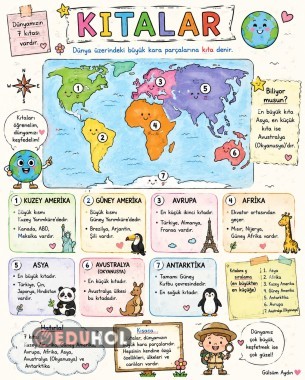 Dünyamızın
7 kıtası
vardır.
KITALAR
Dünya üzerindeki büyük kara parçalarına kıta denir.
Biliyor
musun?
En büyük kıta
Asya, en küçük
kıta ise
Avustralya
(Okyanusya)'dır.
Kıtaları
öğrenelim,
dünyamızı
keşfedelim!
1
2
3
4
5
6
7
1 KUZEY AMERİKA
Büyük kısmı
Kuzey Yarımküre'dedir.
Kanada, ABD,
Meksika vardır.
2 GÜNEY AMERİKA
Büyük kısmı
Güney Yarımküre'dedir.
Brezilya, Arjantin,
Şili vardır.
3 AVRUPA
En küçük ikinci kıtadır.
Türkiye, Almanya,
Fransa vardır.
4 AFRİKA
Ekvator ortasından
geçer.
Mısır, Nijerya,
Güney Afrika vardır.
5 ASYA
En büyük kıtadır.
Türkiye, Çin,
Japonya, Hindistan
vardır.
6 AVUSTRALYA
(OKYANUSYA)
En küçük kıtadır.
Avustralya ülkesi
bu kıtadadır.
7 ANTARKTİKA
Tamamı Güney
Kutbu çevresindedir.
En soğuk kıtadır.
Kıtalara
sıralama
(en büyükten
en küçüğe)
1. Asya
2. Afrika
3. Kuzey Amerika
4. Güney Amerika
5. Antarktika
6. Avrupa
7. Avustralya (Okyanusya)
Hatırla!
EDUHOL
Avrupa, Afrika, Asya,
Avustralya (Okyanusya) ve
Antarktika
Kısaca...
Kıtalar, dünyamızın
büyük kara parçalarıdır.
Hepsinin kendine özgü
özellikleri, ülkeleri ve
canlıları vardır.
Dünyamız
çok büyük,
keşfetmek ise
çok güzel!
Gülsüm Aydın